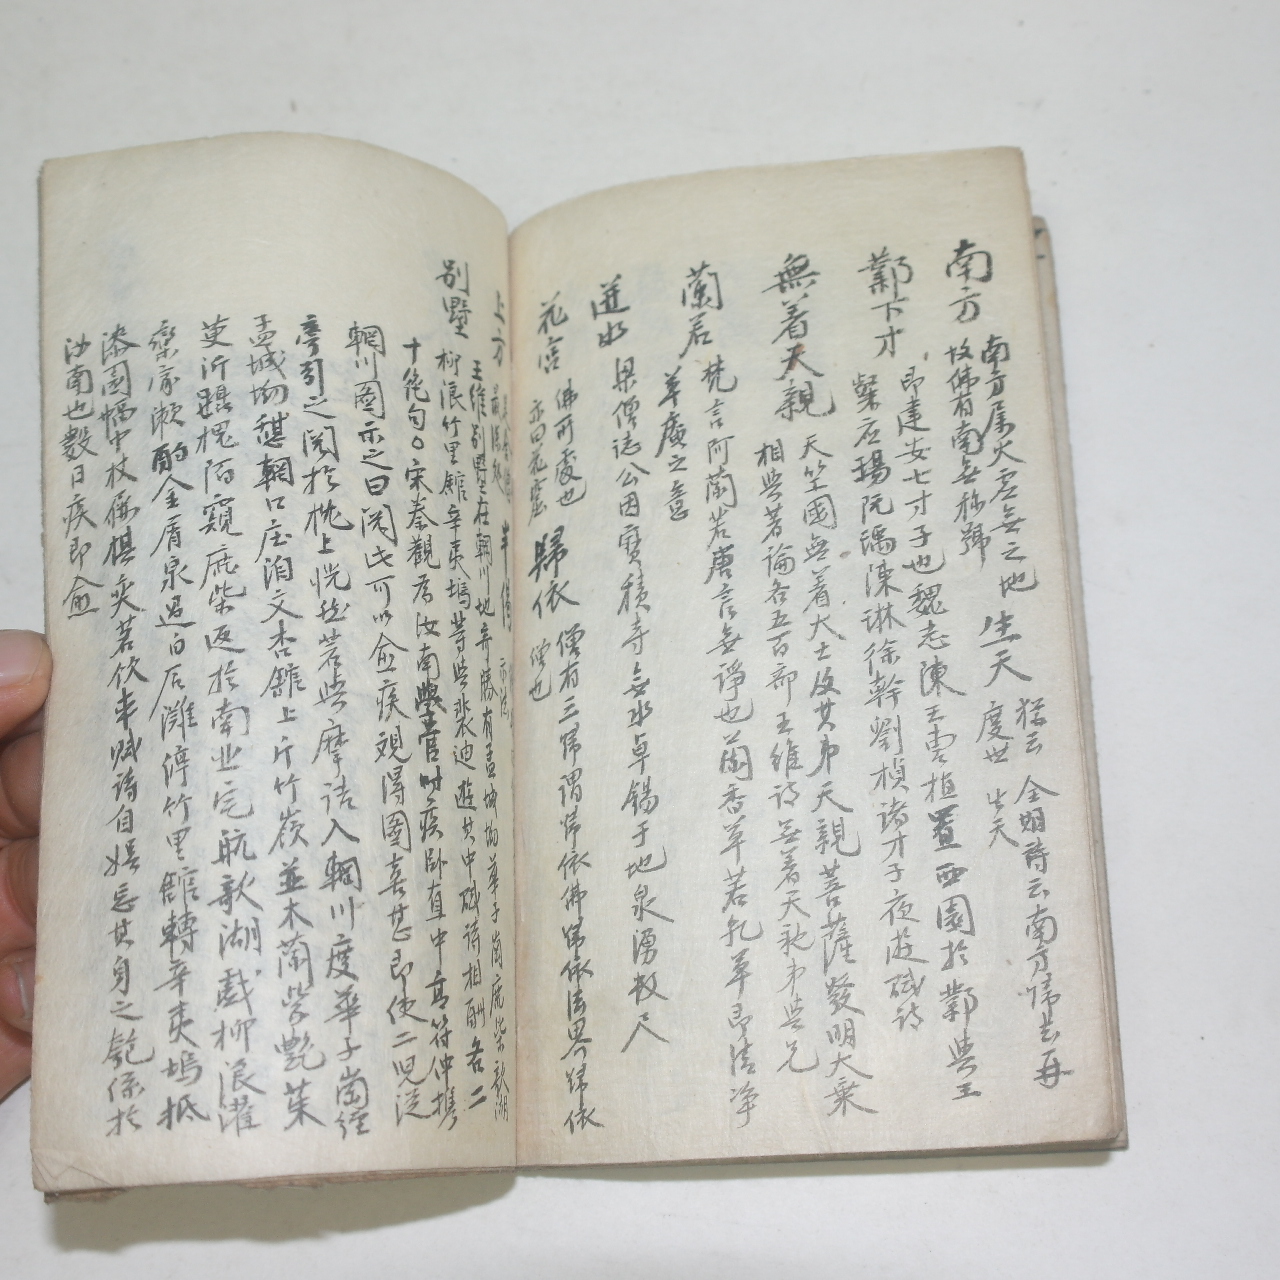 南方 南方屬火虛無之地 生天 猶云度世生天 金明詩云南方歸去再
故佛有南無稱號
鄴下才 即建安七才子也魏志陳王曹植置西園於鄴與王
粲應瑒阮瑀陳琳徐幹劉楨諸才子夜遊賦詩
無着天親 天竺國無着大士及其弟天親菩薩發明大乘
相與著論各五百部王維詩無着天親弟與兄
蘭若 梵言阿蘭若唐言無諍也蘭香草若乳草即清淨
草廣之意
迸水 梁僧誌公因寶積寺無水卓錫于地泉湧數尺
花宮 佛所處也 歸依 僧有三歸謂歸依佛歸依法界歸依
亦曰花窟 僧也
上方
王維別墅在輞川地奇勝有孟城坳華子崗鹿柴欹湖
別墅 柳浪竹里館辛夷塢等與裴迪遊其中賦詩相酬各二
十絶句〇宋秦觀爲汝南學官時疾卧直中高符仲携
輞川圖示之曰閱此可以愈疾觀得圖喜甚即使二兒從
旁引之閱於枕上恍然若與摩詰入輞川度華子崗經
孟城坳憇輞口庄泊文杏館上斤竹嶺並木蘭柴艶茱
萸沂躡槐陌窺鹿柴返於南北宅航欹湖戱柳浪濯
欒家瀨酌金屑泉過白石灘停竹里館轉辛夷塢抵
漆園幅巾杖屨棋奕茗飮來賦詩自娯忘其身之匏係於
汝南也數日疾即愈